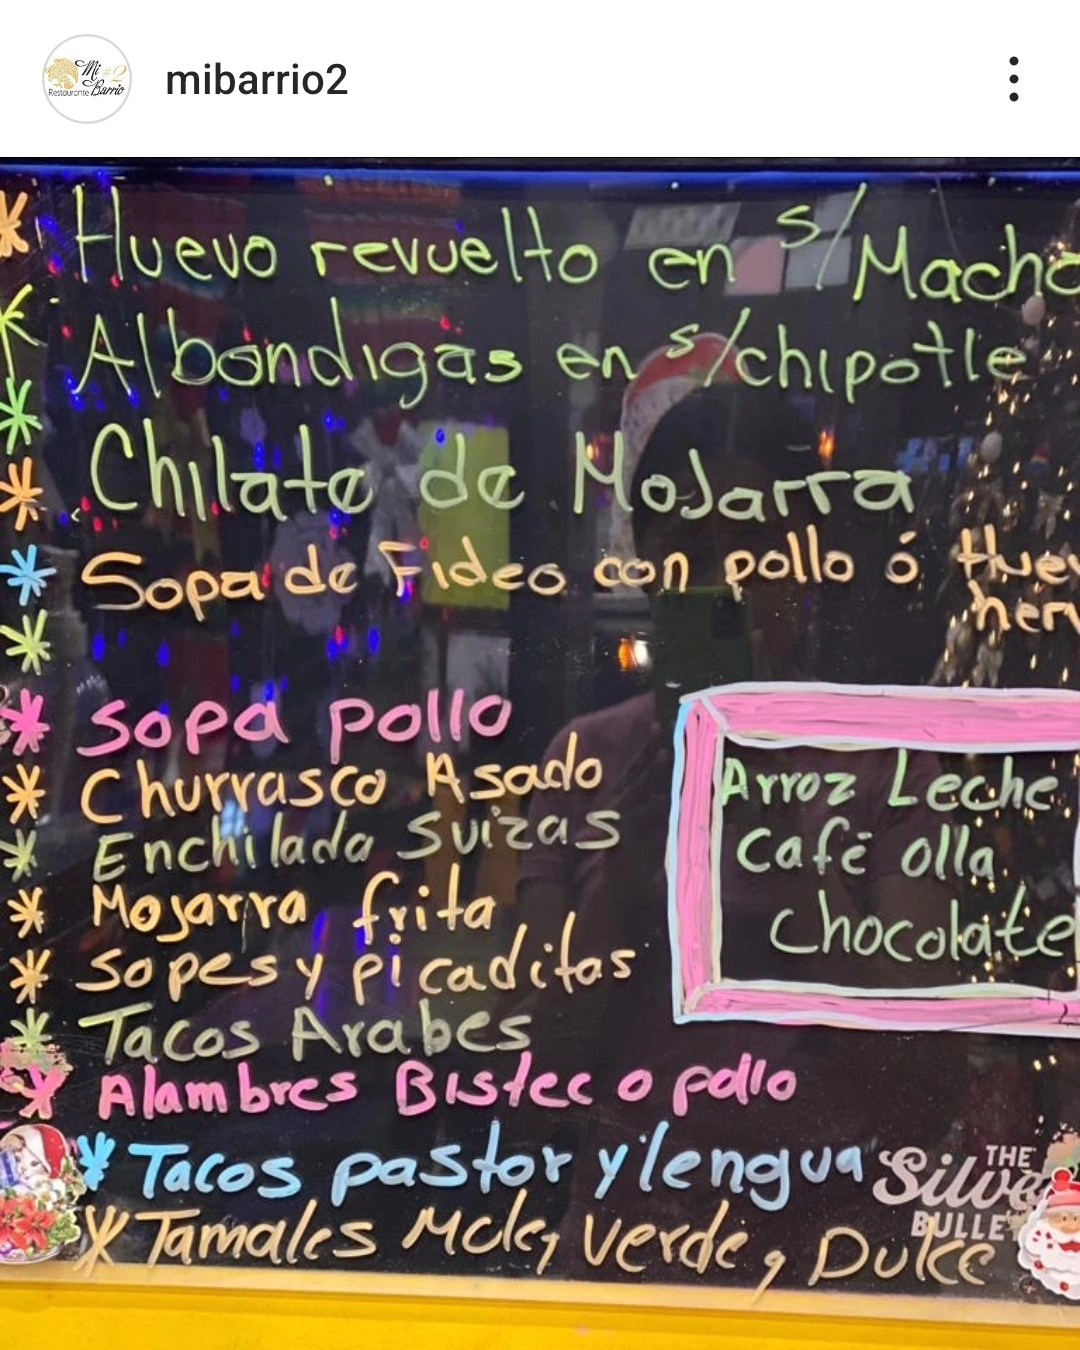 Mi #2
Restaurante Barrio
mibarrio2
* Huevo revuelto en s/Macho
* Albondigas en s/chipotle
* Chilate de Mojarra
* Sopa de Fideo con pollo ó Huev
herv
* Sopa pollo
* Churrasco Asado
* Enchilada Suizas
* Mojarra frita
* Sopes y picaditas
* Tacos Arabes
* Alambres Bistec o pollo
* Tacos pastor y lengua
* Tamales Mole, Verde, Dulce
Arroz Leche
Café olla
chocolate
THE
Silve
BULLE